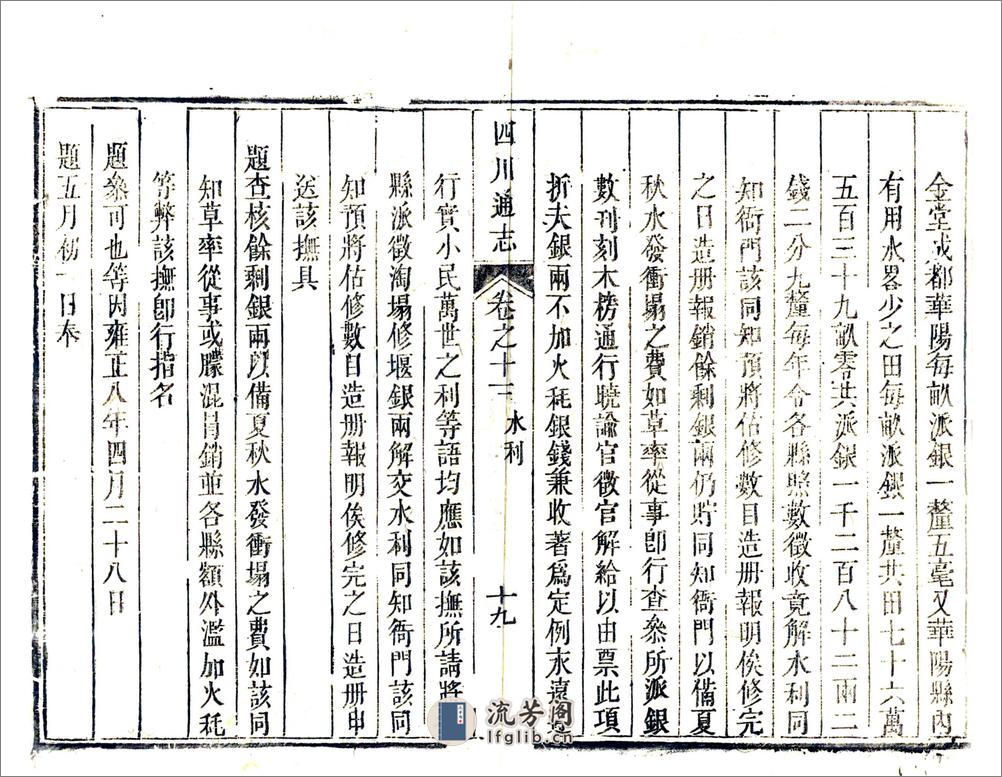 金堂成都華陽每畝派銀一釐五毫又華陽縣內
有用水畧少之田每畝派銀一釐共田七十六萬
五百三十九畝零共派銀一千二百八十二兩二
錢二分九釐每年令各縣照數徵收竟解水利同
知衙門該同知預將估修數目造册報明俟修完
之日造册報銷餘剩銀兩仍貯同知衙門以備夏
秋水發衝塌之費如草率從事卽行查叅所派銀
數刋刻木榜通行曉諭官徵官解給以由票此項
折夫銀兩不加火耗銀錢兼收著爲定例永遠
四川通志 卷之十三 水利 十九
行實小民萬世之利等語均應如該撫所請將
縣派徵淘塌修堰銀兩解交水利同知衙門該同
知預將估修數目造册報明俟修完之日造册申
送該撫具
題查核餘剩銀兩以備夏秋水發衝塌之費如該同
知草率從事或朦混冐銷並各縣額外濫加火耗
等弊該撫卽行指名
題叅可也等因雍正八年四月二十八日
題五月初一日奉
流芳阁
lfglib.cn